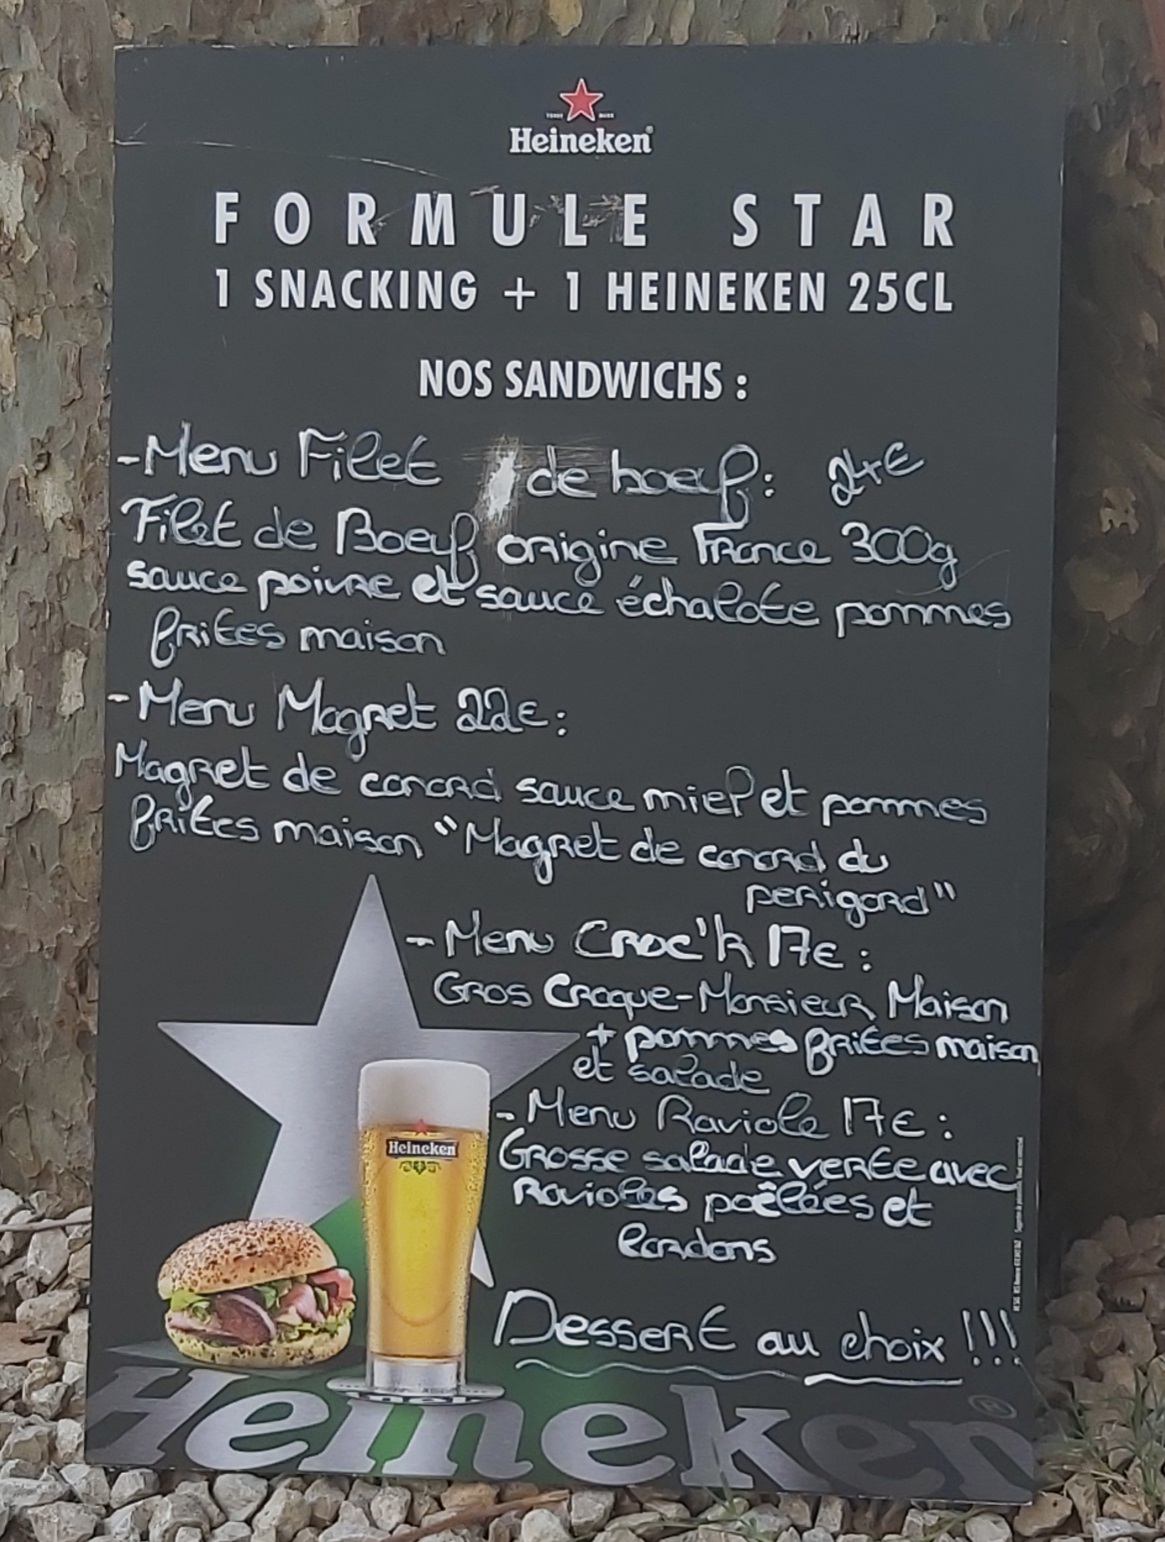 Heineken
FORMULE STAR
1 SNACKING + 1 HEINEKEN 25CL
NOS SANDWICHS :
-Menu Filet de boeuf: 24€
Filet de Boeuf origine France 300g
sauce poivre et sauce échalote pommes
frites maison
-Menu Magret 22€:
Magret de canard sauce miel et pommes
frites maison "Magret de canard du
perigord"
-Menu Croc'k 17€:
Gros Croque-Monsieur Maison
+ pommes frites maison
et salade
-Menu Raviole 17€:
Grosse salade verte avec
Ravioles poêlées et
lardons
Heineken
Dessert au choix !!!
Heineken